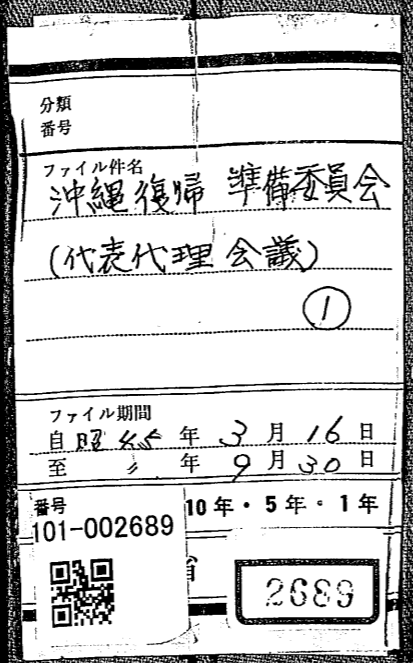 分類
番号
ファイル件名
沖縄復帰 準備委員会
(代表代理会議)
①
ファイル期間
自 昭45年 3月16日
至 〃年 9月30日
番号
101-002689
10年・5年・1年
省
2689